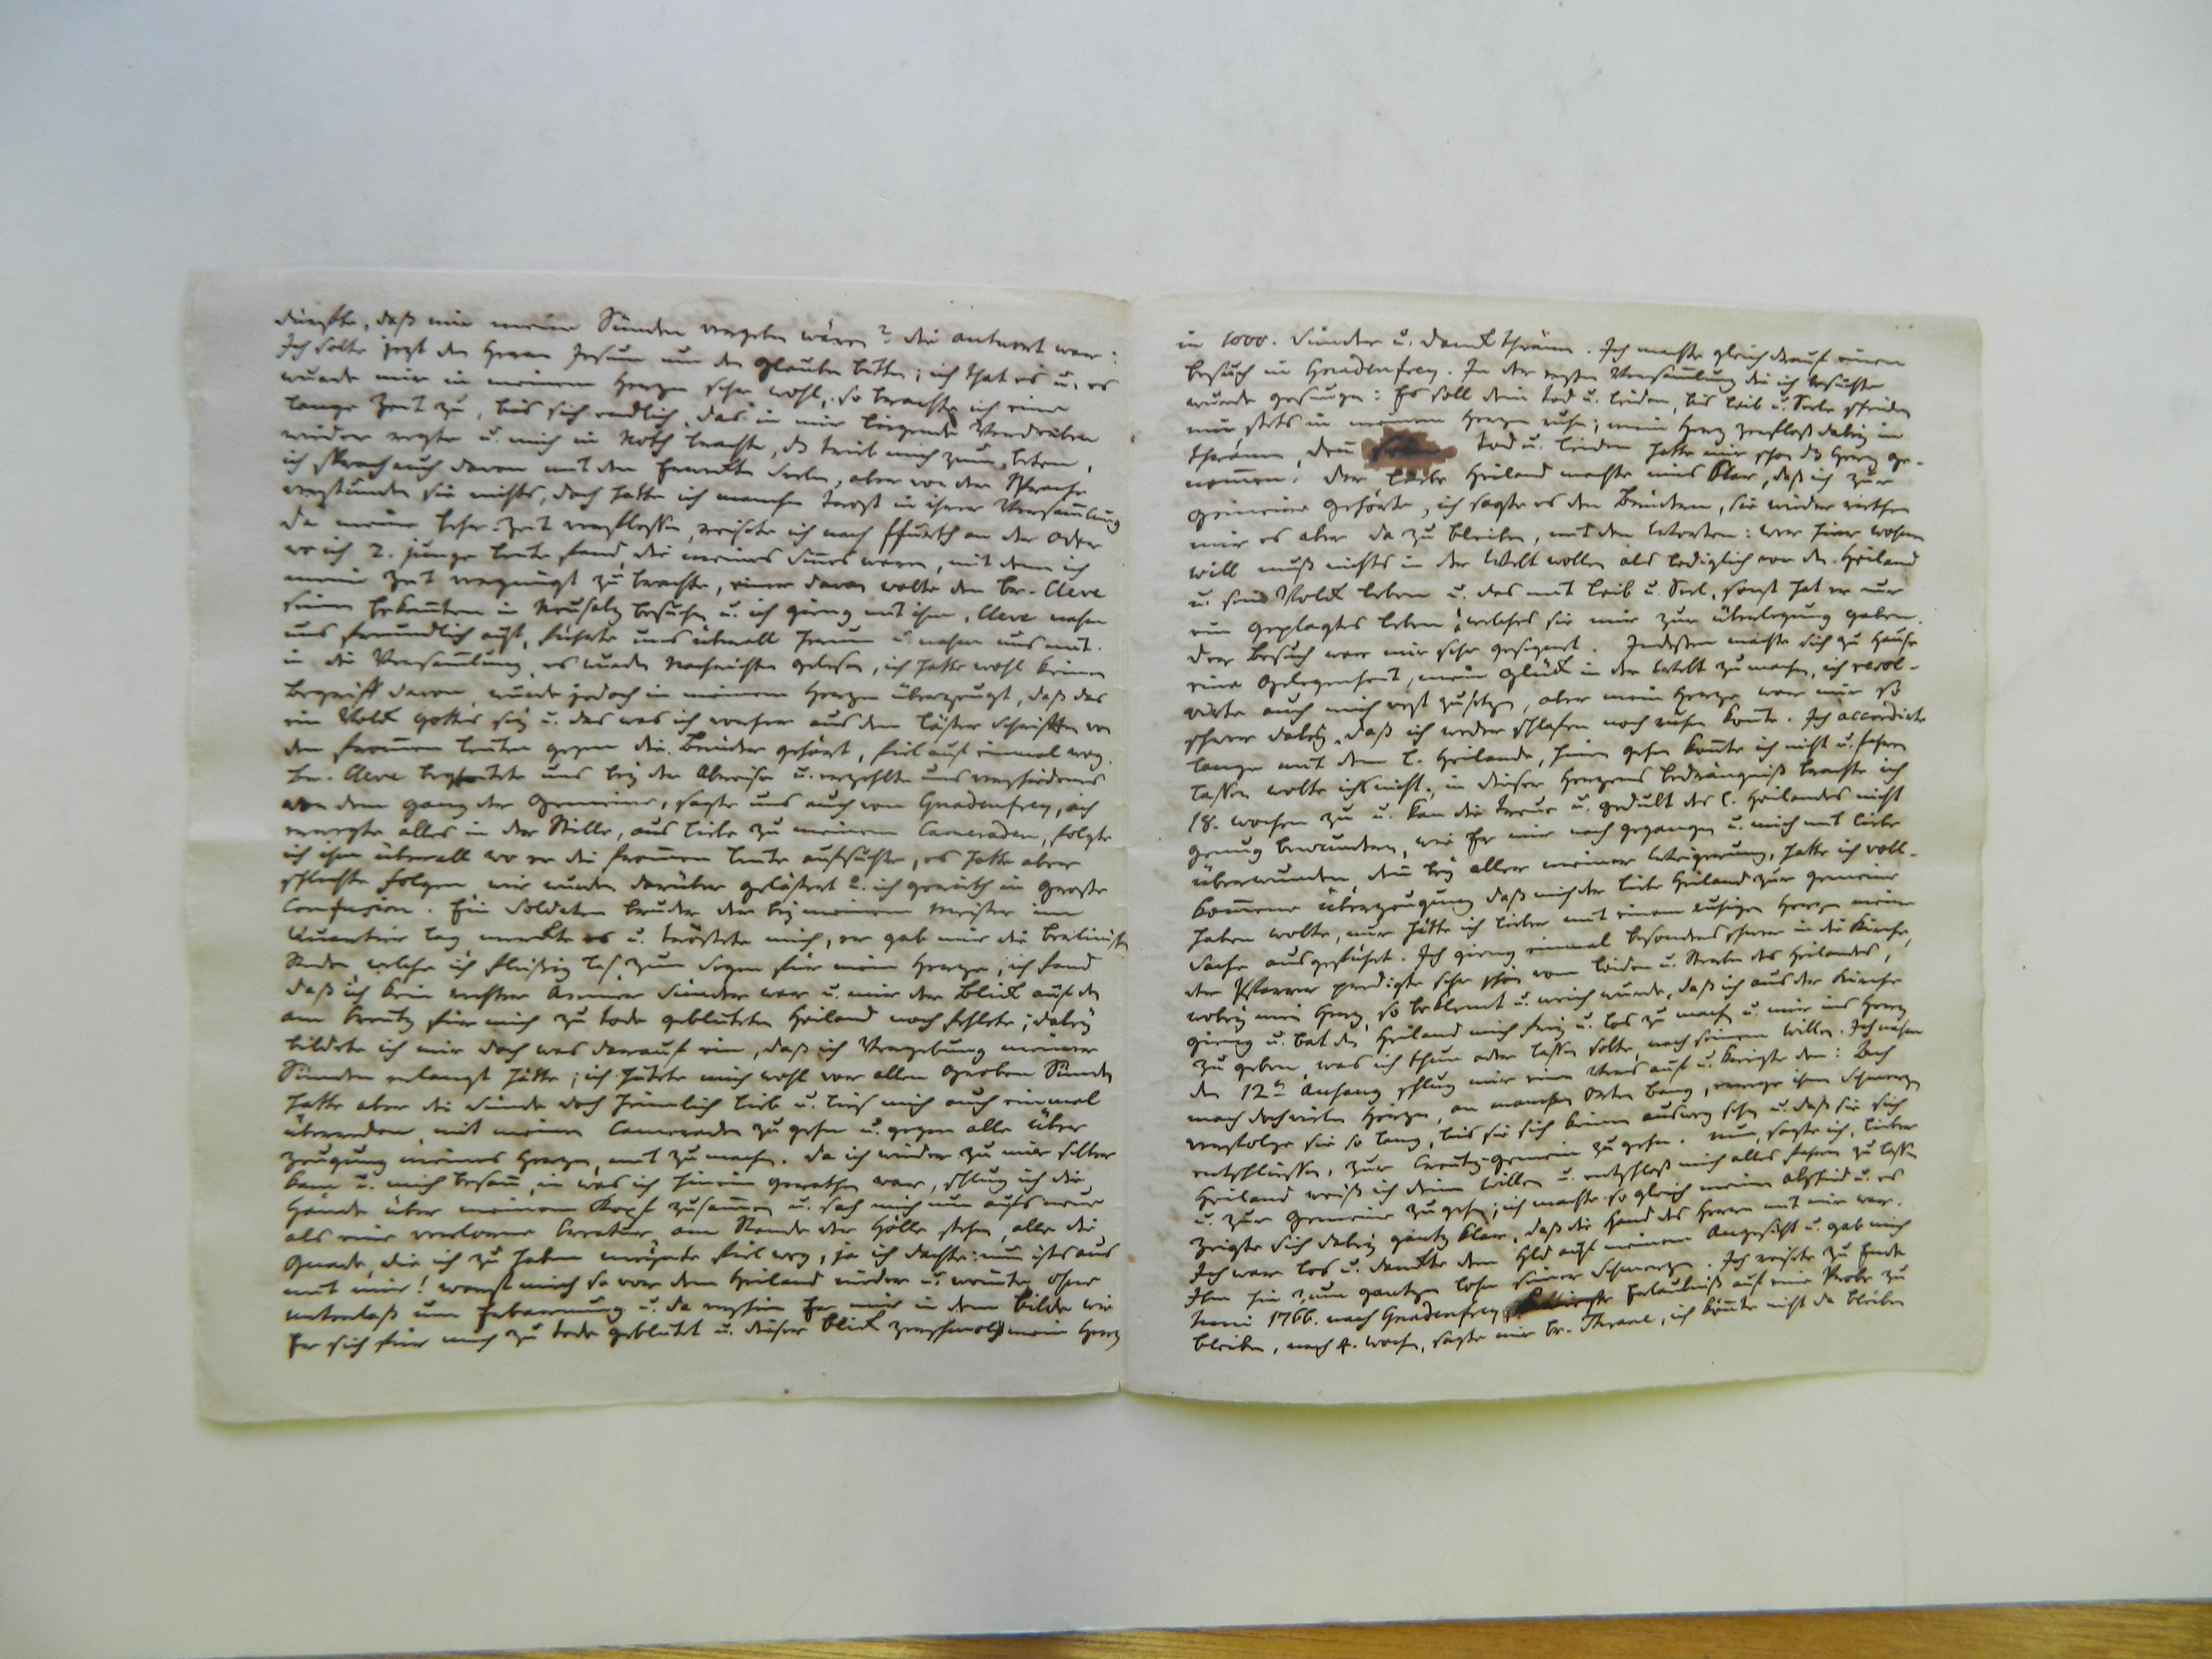 dürffte, daß mir meine Sünden vergeben wären? die antwort war:
Ich solte jezt den Herrn Jesum um den Glauben bitten; ich that es u. es
wurde mir in meinem Herzen sehr wohl, so brachte ich eine
lange Zeit zu, bis sich endlich, das in mir liegende Verderben
wieder regte u. mich in Noth brachte, dß trieb mich zum beten,
ich sprach auch davon mit den Erweckten Seelen, aber von der Sprache
verstunden sie nichts, doch hatte ich manchen Trost in ihrer Versam̄lung
da meine Lehr-Zeit verflossen, reisete ich nach ffurth an der Oder
wo ich 2. junge Leute fand, die meines Sinnes waren, mit denen ich
meine Zeit vergnügt zu brachte, einer davon wolte den Br. Cleve
seinen bekan̄ten in Neusalz besuchen u. ich gieng mit ihm, Cleve nahm
uns freundlich auf, führte uns überall herum u. nahm uns mit
in die Versam̄lung, es wurden Nachrichten gelesen, ich hatte wohl keinen
begriff davon, wurde jedoch in meinem Herzen überzeugt, daß das
ein Volck Gottes sey u. das was ich vorher aus den Läster Schrifften von
den from̄en Leuten gegen die Brüder gehört, fiel auf einmal weg.
Br. Cleve begleitete uns bey der Abreise u. erzehlte uns verschiedenes
von dem gang der Gemeine, sagte uns auch von Gnadenfrey, ich
erwegte alles in der Stille, aus Liebe zu meinem Cameraden, folgte
ich ihm überall wo er die from̄en Leute aufsuchte, es hatte aber
schlechte folgen, wir wurden darüber gelästert u. ich gerieth in große
Confusion. Ein Soldaten bruder der bey meinem Meister im
Quartier lag merckte es u. tröstete mich, er gab mir die Berlinische
Reden, welche ich fleißig las, zum Segen für mein Herze, ich fand
daß ich kein rechter Armer Sünder war u. mir der Blick auf den
am Creutz für mich zu tode gebluteten Heiland noch fehlete; dabey
bildete ich mir doch was darauf ein, daß ich Vergebung meiner
Sünden erlangt hätte; ich hütete mich wohl vor allen groben Sünden
hatte aber die Sünde doch heimlich lieb u. lies mich auch einmal
überreden, mit meinen Cameraden zu gehn u. gegen alle über
zeugung meines Herzen, mit zu machen. da ich wieder zu mir selber
kam u. mich besan̄, in was ich hinein gerathen war, schlug ich die
Hände über meinem Kopf zusam̄en u. sah mich nun aufs neue
als eine verlorne Creatur, am Rande der Hölle stehn, alle die
Gnade, die ich zu haben meynte fiel weg, ja ich dachte: nun ists aus
mit mir! warf mich so vor dem Heiland nieder u. weinte, ohne
unterlaß um Erbarmung u. da erschien Er mir in dem Bilde wie
Er sich für mich zu tode geblutet u. dieser Blick zerschmolz mein Herz
in 1000. Sünder u. Danck thränen. Ich machte gleich drauf einen
besuch in Gnadenfrey. In der ersten Versam̄lung die ich besuchte
wurde gesungen: Es soll dein Tod u. Leiden, bis Leib u. Seele scheiden
mir stets in meinem Herzen ruhn; mein Herz zerfloß dabey in
thränen, den̄ Tod u. Leiden hatte mir schon dß Herz ge-
nom̄en. Der Liebe Heiland machte mirs klar, daß ich zur
Gemeine gehörte, ich sagte es den Brüdern, sie wieder riethen
mir es aber da zu bleiben, mit den Worten: wer hier wohnen
will muß nichts in der Welt wollen als lediglich vor den Heiland
u. sein Volck leben u. das mit Leib u. Seel, sonst hat er nur
ein geplagtes Leben; welches sie mir zur überlegung gaben.
der Besuch war mir sehr gesegnet. Indessen machte sich zu Hause
eine Gelegenheit, mein Glück in der Welt zu machen, ich resol-
virte auch mich vest zu setzen, aber mein Herze war mir so
schwer dabey, daß ich weder schlafen noch ruhen konte. Ich accordirte
lange mit dem l. Heilande, hinein gehen kon̄te ich nicht u. fahren
lassen wolte ichs nicht, in dieser Herzens bedrängniß brachte ich
18. wochen zu u. kan die treue u. gedult des l. Heilandes nicht
genug bewundern, wie Er mir nach gegangen u. mich mit liebe
überwunden den̄ bey aller meiner Weigerung, hatte ich voll-
kom̄ene überzeugung daß mich der liebe Heiland zur Gemeine
haben wolte, nur hätte ich lieber mit einem ruhigen Herzen meine
Sache ausgeführt. Ich gieng einmal besonders schwer in die Kirche,
der Pfarrer predigte sehr schön vom Leiden u. Sterben des Heilandes,
wobey mein Herz, so beklemt u. weich wurde, daß ich aus der Kirche
gieng u. bat den Heiland mich frey u. los zu machen u. mir ins Herz
zu geben, was ich thun oder lassen solte, nach seinem Willen. Ich nahm
den 12ten Anhang schlug mir einen Vers auf u. kriegte den: Ach
mach doch vielen Herzen, an manchen Orten bang, errege ihnen Schmerzen
verfolge sie so lang, bis sie sich keinen ausweg sehn u. daß sie sich
entschliessen, zur Creutz-gemein zu gehn. Nun, sagte ich, lieber
Heiland weiß ich deinen Willen u. entschloß mich alles fahren zu lassen
u. zur Gemeine zu gehn; ich machte so gleich meinen abschied u. es
zeigte sich dabey gantz klar, daß die Hand des Herrn mit mir war.
Ich war los u. danckte dem Hld auf meinem Angesicht u. gab mich
Ihm hin zum gantzen Lohn seiner Schmerzen. Ich reisete zu Ende
Juni 1766. nach Gnadenfrey Erlaubniß auf eine Probe zu
bleiben, nach 4. wochen, sagte mir Br. , ich kön̄te nicht da bleiben